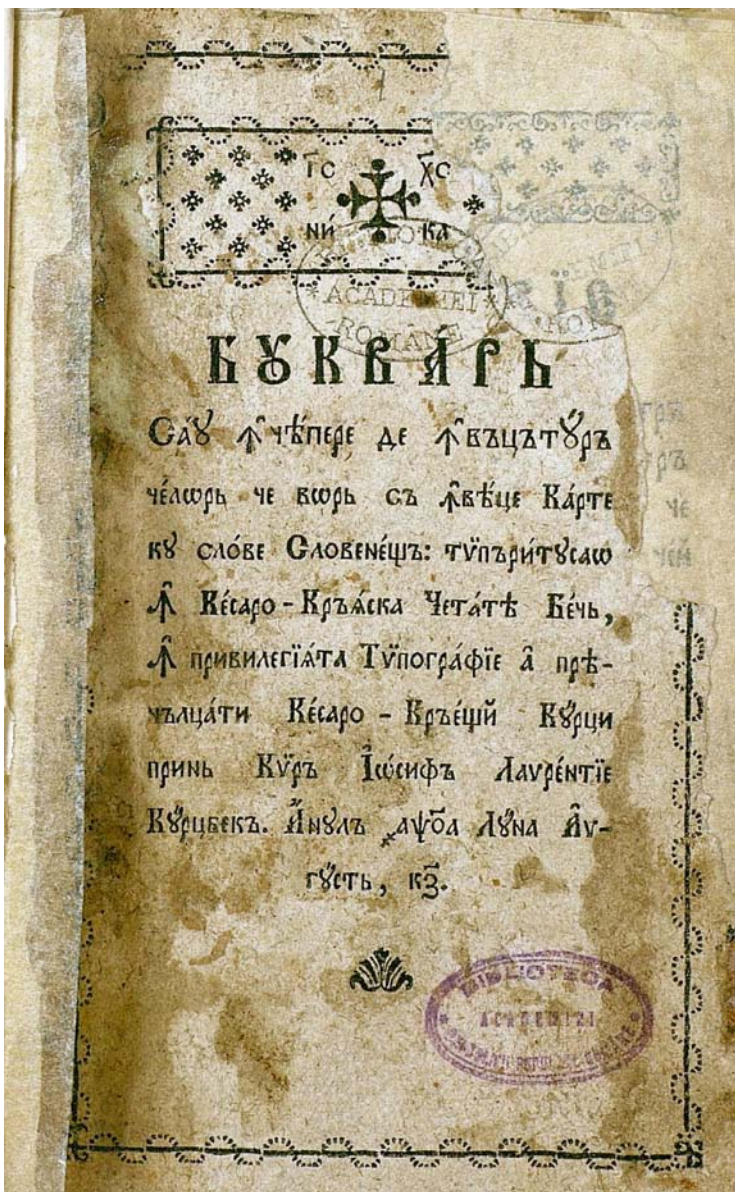 І҃С Х҃С
НИ́ КА
БꙊКВА́РЬ
Са́ꙋ ꙟ҆чѣ́пере де ꙟ҆въцътꙋ́ръ
че́лѡрь че вѡрь съ ꙟ҆вѣ́це Ка́рте
кꙋ сло́ве Словене́щъ: тѵ̈пъри́тꙋсаѡ
ꙟ҆ Ке́саро-Кръѧ́ска Чета́тѣ Бе́чь,
ꙟ҆ привилегїѧ́та Тѵ̈погра́фїе а҆ прѣ-
нълца́ти Ке́саро - Кръе́щй Кꙋ́рци
принь Кѵ́ръ І҆ѡ́сифъ Лаѵре́нтїе
Кꙋ́рцбекъ. А҆́нꙋлъ ҂аѱ҃оа Лꙋ́на А҆́ѵ-
гꙋсть, кз҃.
ACADEMIEI
ROMÂNE
BIBLIOTECA
ACADEMIEI